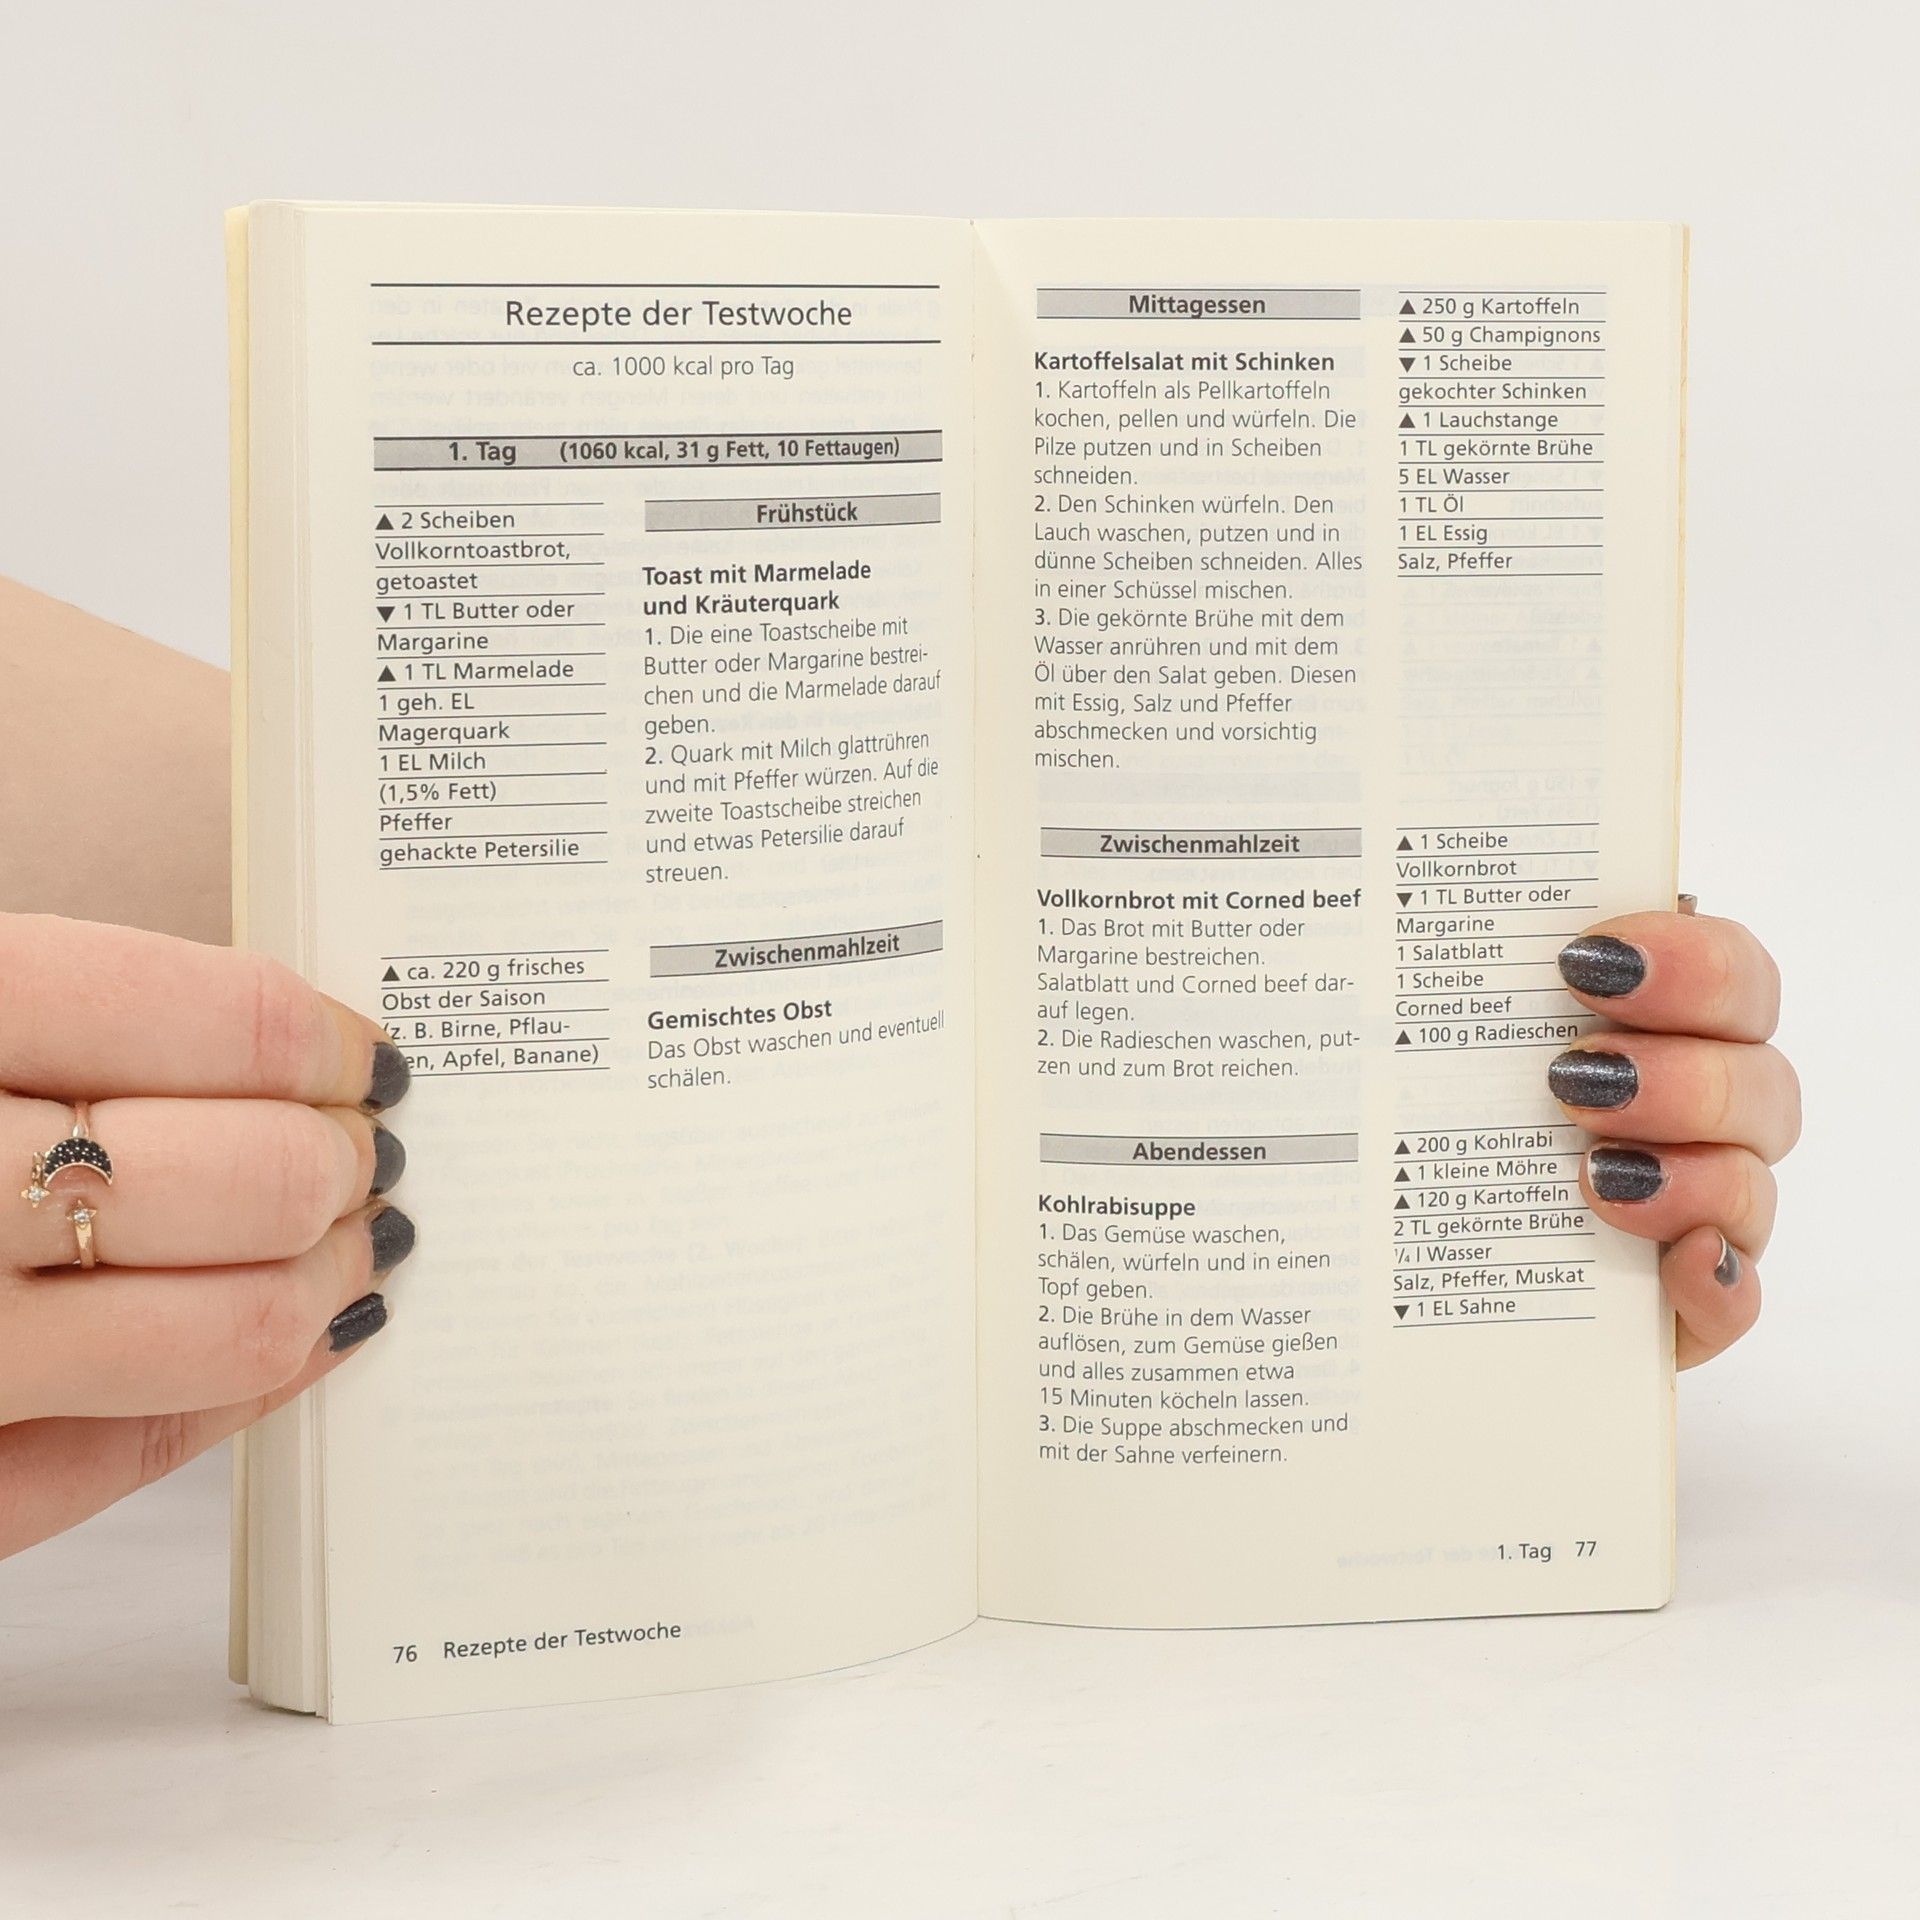 Rezepte der Testwoche
ca. 1000 kcal pro Tag
1. Tag (1060 kcal, 31 g Fett, 10 Fettaugen)
▲ 2 Scheiben
Vollkorntoastbrot,
getoastet
▼ 1 TL Butter oder
Margarine
▲ 1 TL Marmelade
1 geh. EL
Magerquark
1 EL Milch
(1,5% Fett)
Pfeffer
gehackte Petersilie
Frühstück
Toast mit Marmelade
und Kräuterquark
1. Die eine Toastscheibe mit
Butter oder Margarine bestrei-
chen und die Marmelade darauf
geben.
2. Quark mit Milch glattrühren
und mit Pfeffer würzen. Auf die
zweite Toastscheibe streichen
und etwas Petersilie darauf
streuen.
▲ ca. 220 g frisches
Obst der Saison
(z. B. Birne, Pflau-
en, Apfel, Banane)
Zwischenmahlzeit
Gemischtes Obst
Das Obst waschen und eventuell
schälen.
76 Rezepte der Testwoche
Mittagessen
Kartoffelsalat mit Schinken
1. Kartoffeln als Pellkartoffeln
kochen, pellen und würfeln. Die
Pilze putzen und in Scheiben
schneiden.
2. Den Schinken würfeln. Den
Lauch waschen, putzen und in
dünne Scheiben schneiden. Alles
in einer Schüssel mischen.
3. Die gekörnte Brühe mit dem
Wasser anrühren und mit dem
Öl über den Salat geben. Diesen
mit Essig, Salz und Pfeffer
abschmecken und vorsichtig
mischen.
▲ 250 g Kartoffeln
▲ 50 g Champignons
▼ 1 Scheibe
gekochter Schinken
▲ 1 Lauchstange
1 TL gekörnte Brühe
5 EL Wasser
1 TL Öl
1 EL Essig
Salz, Pfeffer
Zwischenmahlzeit
Vollkornbrot mit Corned beef
1. Das Brot mit Butter oder
Margarine bestreichen.
Salatblatt und Corned beef dar-
auf legen.
2. Die Radieschen waschen, put-
zen und zum Brot reichen.
▲ 1 Scheibe
Vollkornbrot
▼ 1 TL Butter oder
Margarine
1 Salatblatt
1 Scheibe
Corned beef
▲ 100 g Radieschen
Abendessen
Kohlrabisuppe
1. Das Gemüse waschen,
schälen, würfeln und in einen
Topf geben.
2. Die Brühe in dem Wasser
auflösen, zum Gemüse gießen
und alles zusammen etwa
15 Minuten köcheln lassen.
3. Die Suppe abschmecken und
mit der Sahne verfeinern.
▲ 200 g Kohlrabi
▲ 1 kleine Möhre
▲ 120 g Kartoffeln
2 TL gekörnte Brühe
¼ l Wasser
Salz, Pfeffer, Muskat
▼ 1 EL Sahne
1. Tag 77